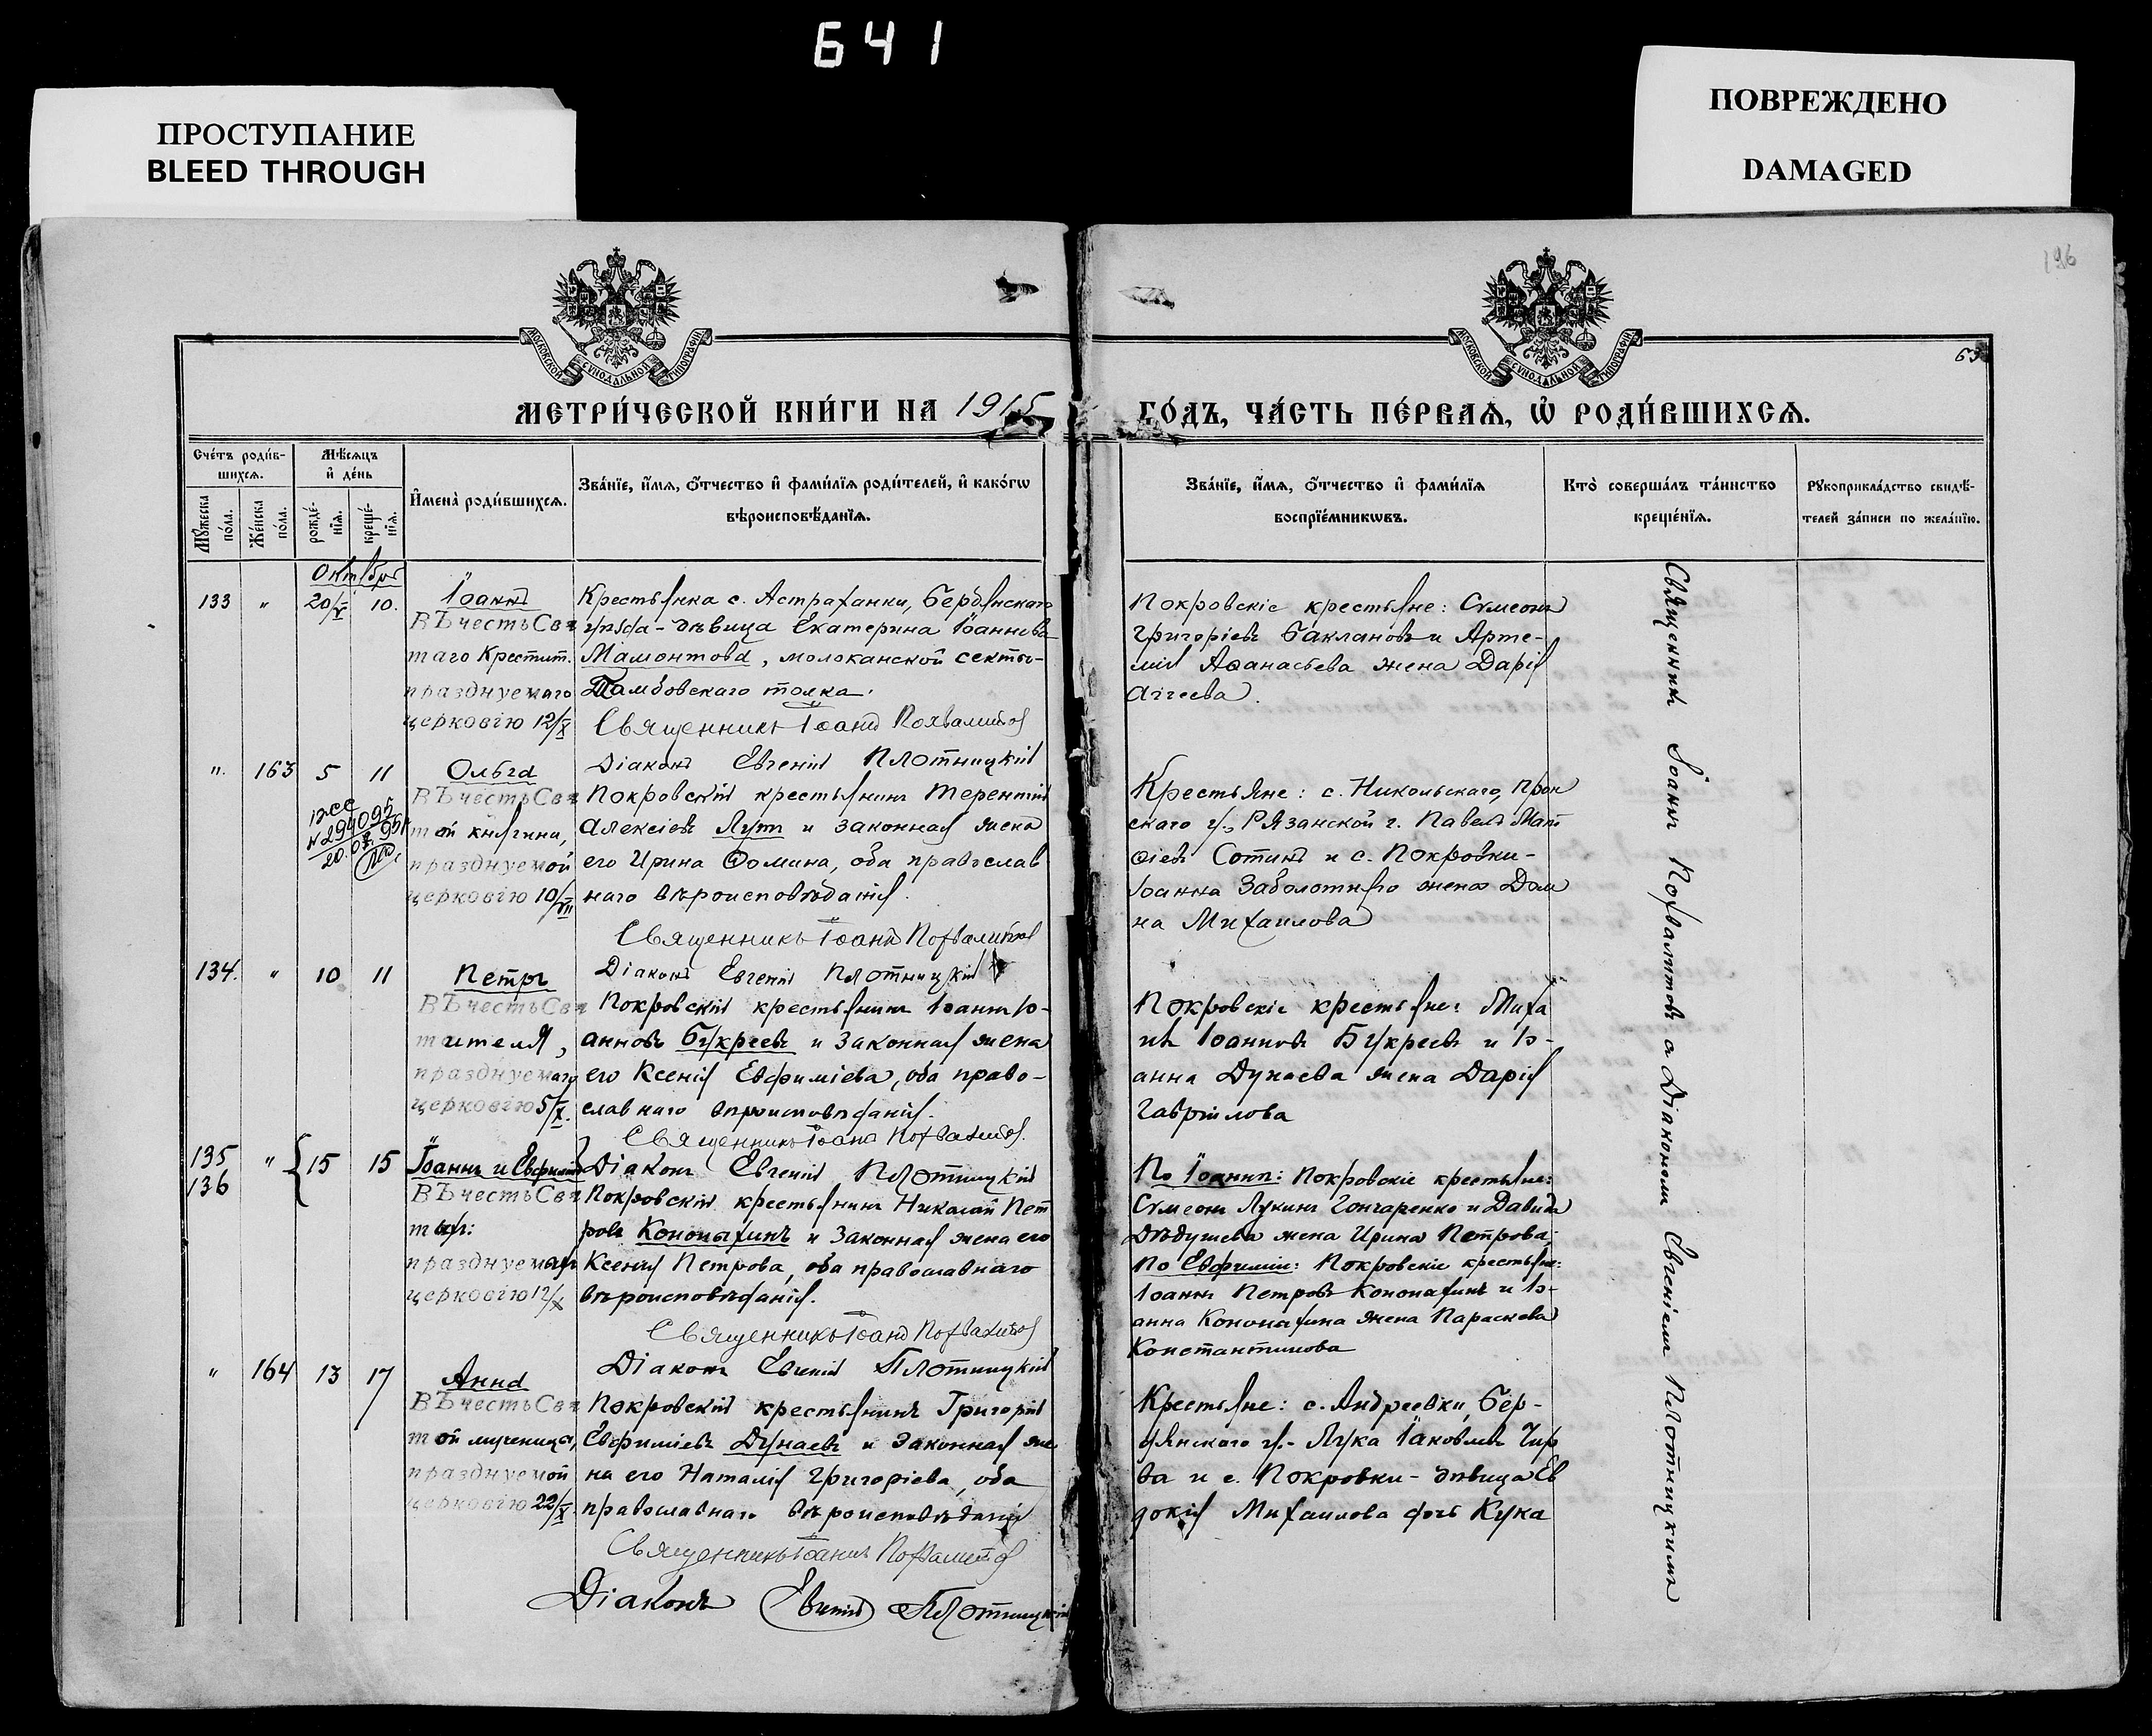 641
ПРОСТУПАНИЕ
BLEED THROUGH
ПОВРЕЖДЕНО
DAMAGED
196
МОСКОВСКОЙ СѴНОДАЛЬНОЙ ТИПОГРАФІИ
МОСКОВСКОЙ СѴНОДАЛЬНОЙ ТИПОГРАФІИ
63
МЕТРИ́ЧЕСКОЙ КНИ́ГИ НА 1915
ГО́ДЪ, ЧА́СТЬ ПЕ́РВАѦ, Ѽ РОДИ́ВШИХСѦ.
Сче́тъ роди́в-
шихсѧ.
Мꙋжеска по́ла.
Же́нска по́ла.
Мѣ́сѧцъ
и҆ де́нь
рожде́-
нїѧ.
креще́-
нїѧ.
И҆мена̀ роди́вшихсѧ.
Зва́нїе, и҆́мѧ, ѻ҆́тчество и҆ фами́лїѧ роди́телей, и҆ како́гѡ
вѣроисповѣ́данїѧ.
Зва́нїе, и҆́мѧ, ѻ҆́тчество и҆ фами́лїѧ
воспрїе́мникѡвъ.
Кто̀ соверша́лъ та́инство
креще́нїѧ.
Рꙋкоприкла́дство свидѣ́-
телей за́писи по жела́нїю.
Октября
133 " 20/V 10.
Іоаннъ
Въ честь Свя
таго Крестит.
празднуемаго
церковію 12/X
Крестьянка с. Астраханки, Бердянскаго
уѣзда - дѣвица Екатерина Іоаннова
Мамонтова, молоканской секты-
Тамбовскаго толка.
Священникъ Іоаннъ Похвалитовъ
Діаконъ Евгеній Плотницкій
Покровскіе крестьяне: Сѵмеонъ
Григоріевъ Баклановъ и Арте-
мія Аѳанасьева жена Дарія
Аггеева.
" 163 5 11
Ольга
Въ честь Свя
той княгини,
празднуемой
церковію 10/VII
Покровскій крестьянинъ Терентій
Алексіевъ Лутъ и законная жена
его Ирина Ѳомина, оба православ
наго вѣроисповѣданія.
Священникъ Іоаннъ Похвалитовъ
Діаконъ Евгеній Плотницкій
Крестьяне: с. Никольскаго, Прон
скаго у., Рязанской г. Павелъ Мат
ѳіевъ Сотинъ и с. Покровки-
Іоанна Заболотняго жена Дом
на Михаилова
134. " 10 11
Петръ
Въ честь Свя
тителя,
празднуемаго
церковію 5/X.
Покровскій крестьянинъ Іоаннъ Іо-
анновъ Букреевъ и законная жена
его Ксенія Евѳиміева, оба право-
славнаго вѣроисповѣданія.
Священникъ Іоаннъ Похвалитовъ.
Діаконъ Евгеній Плотницкій
Покровскіе крестьяне: Миха
илъ Іоанновъ Букреевъ и Іо-
анна Дунаева жена Дарія
Гавріилова
135
136 " 15 15
Іоаннъ и Евѳимій
Въ честь Свя
тых:
празднуемых
церковію 12/X
Покровскій крестьянинъ Николай Пет
ровъ Кononыхинъ и законная жена его
Ксенія Петрова, оба православнаго
вѣроисповѣданія.
Священникъ Іоаннъ Похвалитовъ
Діаконъ Евгеній Плотницкій
По Іоаннѣ: Покровскіе крестьяне:
Сѵмеонъ Лукинъ Гончаренко и Давида
Дѣдушева жена Ирина Петрова;
По Евѳиміи: Покровскіе крестьяне:
Іоаннъ Петровъ Кононыхинъ и Іо-
анна Кононыхина жена Параскева
Константинова
" 164 13 17
Анна
Въ честь Свя
той мученицы,
празднуемой
церковію 22/X.
Покровскій крестьянинъ Григорій
Евѳиміевъ Дунаевъ и законная же
на его Наталія Григоріева, оба
православнаго вѣроисповѣданія
Священникъ Іоаннъ Похвалитовъ
Діаконъ Евгеній Плотницкій
Крестьяне: с. Андреевки, Бер-
дянскаго у.- Лука Іаковлевъ Чир
ва и с. Покровки - дѣвица Ев
докія Михаилова дочь Кука
Священникъ Іоаннъ Похвалитовъ а Діакономъ Евгеніемъ Плотницкимъ